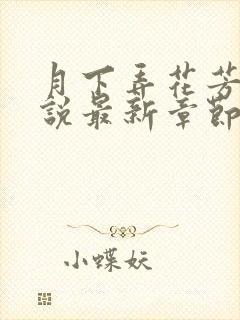 月下弄花芳
說最新章節
小蝶妖